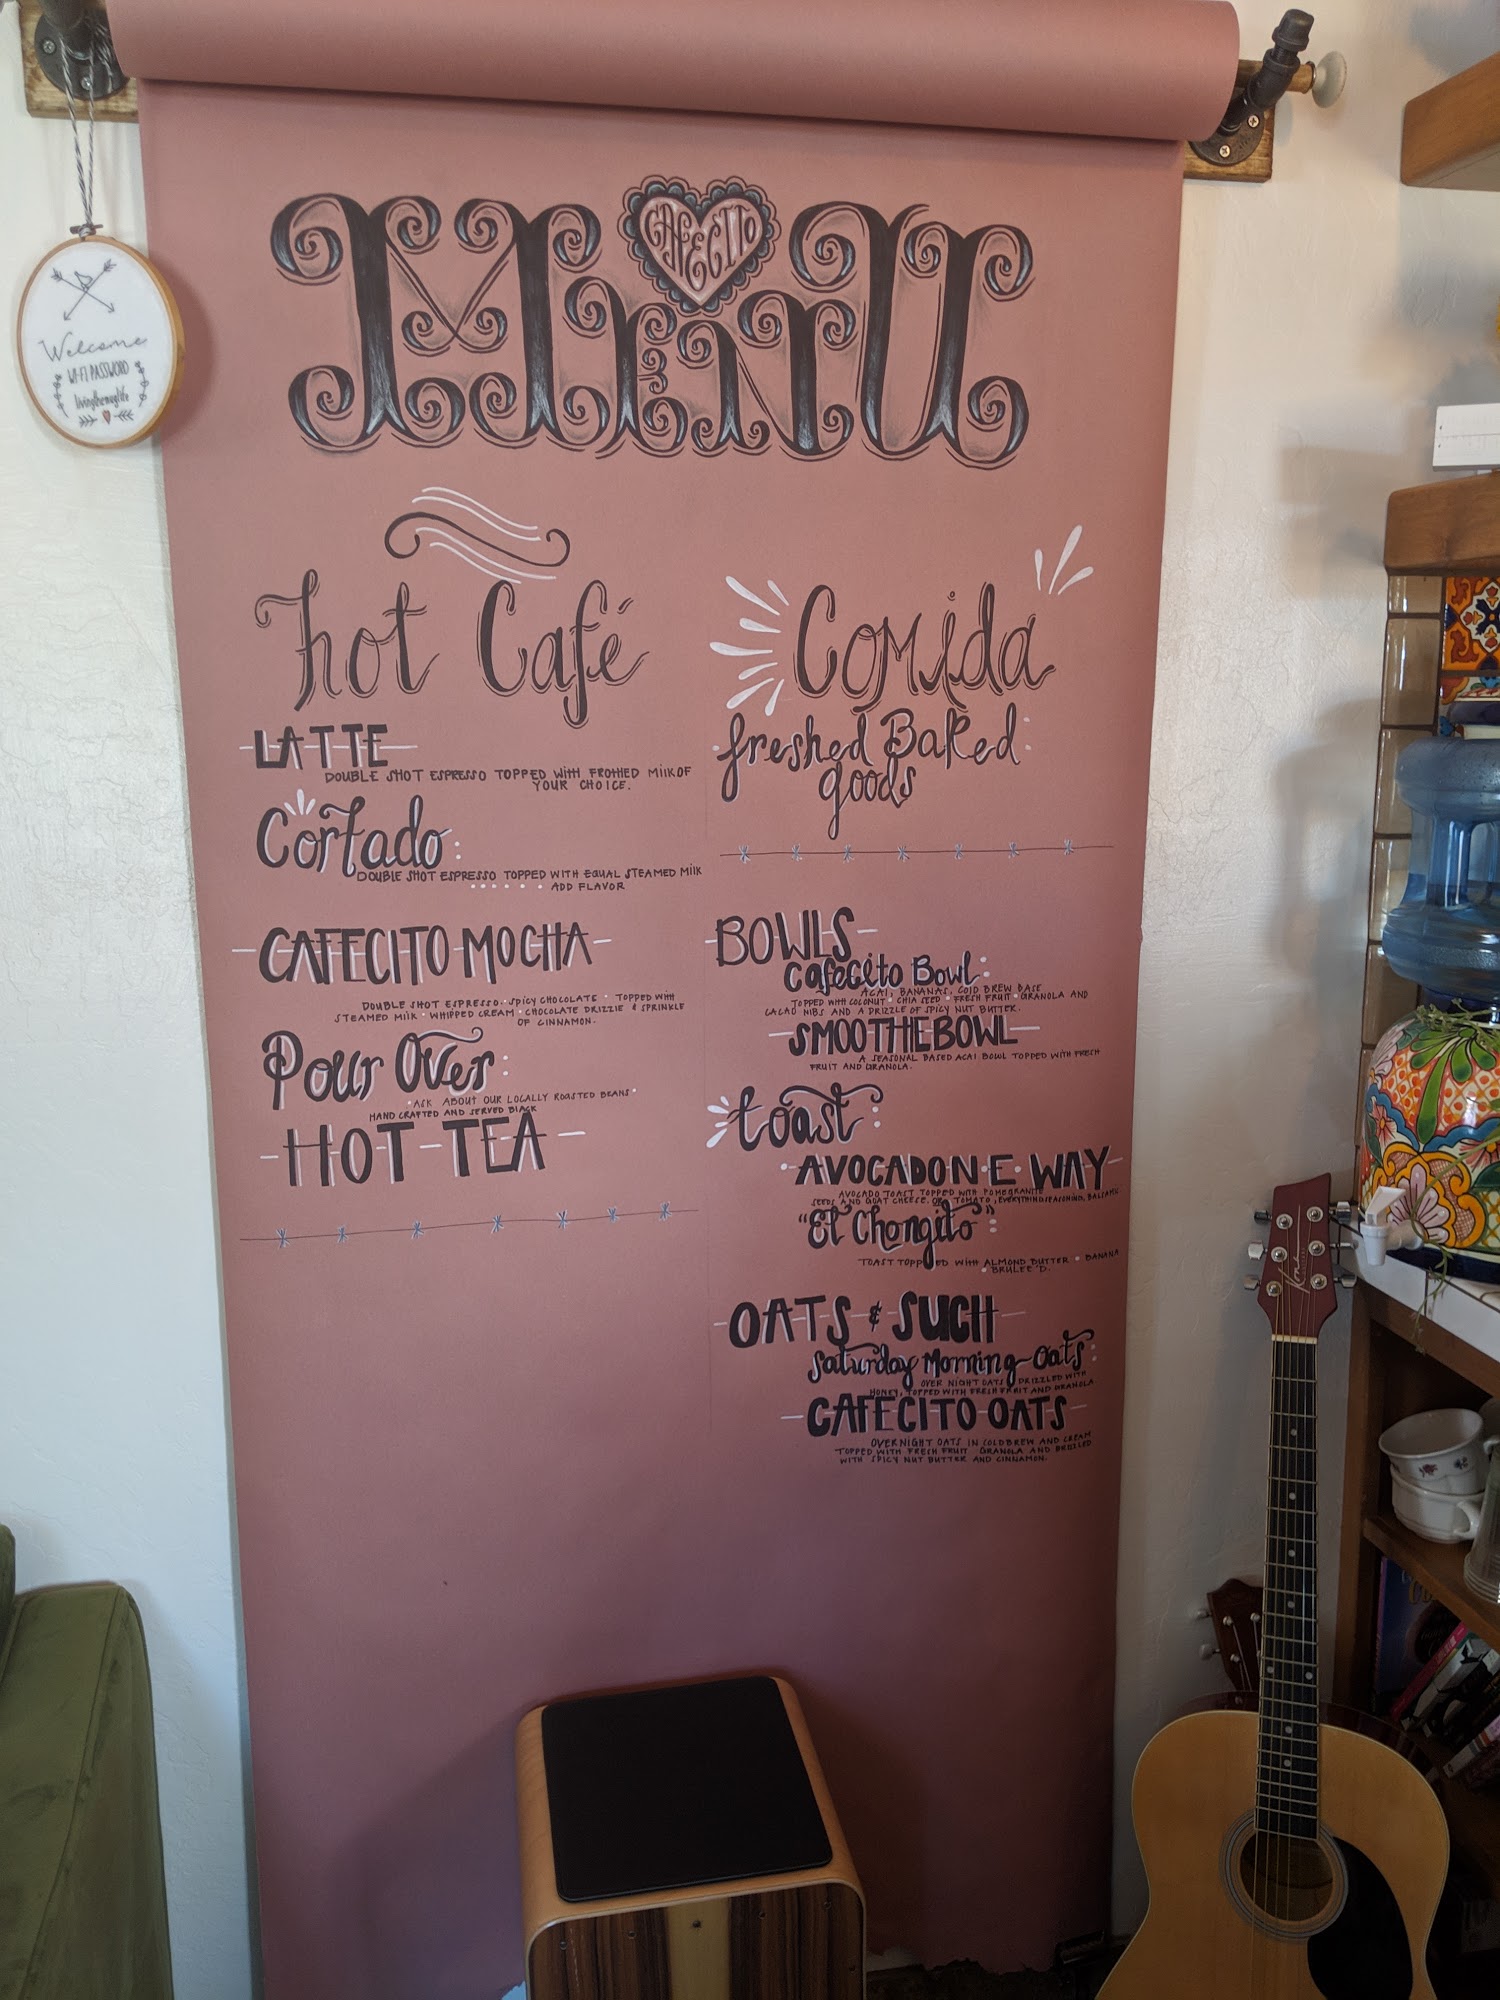 CAFECITO
MENU
Welcome
WI-FI PASSWORD
livingthemuglife
hot Café
LATTE
DOUBLE SHOT ESPRESSO TOPPED WITH FROTHED MILK OF
YOUR CHOICE.
Cortado
DOUBLE SHOT ESPRESSO TOPPED WITH EQUAL STEAMED MILK
ADD FLAVOR
CAFECITO MOCHA
DOUBLE SHOT ESPRESSO · SPICY CHOCOLATE · TOPPED WITH
STEAMED MILK · WHIPPED CREAM · CHOCOLATE DRIZZLE & SPRINKLE
OF CINNAMON.
Pour Over
ASK ABOUT OUR LOCALLY ROASTED BEANS
HAND CRAFTED AND SERVED BLACK
HOT TEA
Comida
freshed Baked
goods
BOWLS
Cafecito Bowl
ACAI, BANANAS, COLD BREW BASE
TOPPED WITH COCONUT · CHIA SEED · FRESH FRUIT · GRANOLA AND
CACAO NIBS AND A DRIZZLE OF SPICY NUT BUTTER.
SMOOTHEBOWL
A SEASONAL BASED ACAI BOWL TOPPED WITH FRESH
FRUIT AND GRANOLA.
toast
AVOCADON E WAY
AVOCADO TOAST TOPPED WITH POMEGRANITE
SEEDS AND GOAT CHEESE. OR TOMATO, EVERYTHING SEASONING, BALSAMIC
"El Chongito"
TOAST TOPPED WITH ALMOND BUTTER · BANANA
BRULEE'D.
OATS & SUCH
Saturday Morning Oats
OVER NIGHT OATS DRIZZLED WITH
HONEY, TOPPED WITH FRESH FRUIT AND GRANOLA
CAFECITO OATS
OVERNIGHT OATS IN COLDBREW AND CREAM
TOPPED WITH FRESH FRUIT GRANOLA AND DRIZZLED
WITH SPICY NUT BUTTER AND CINNAMON.